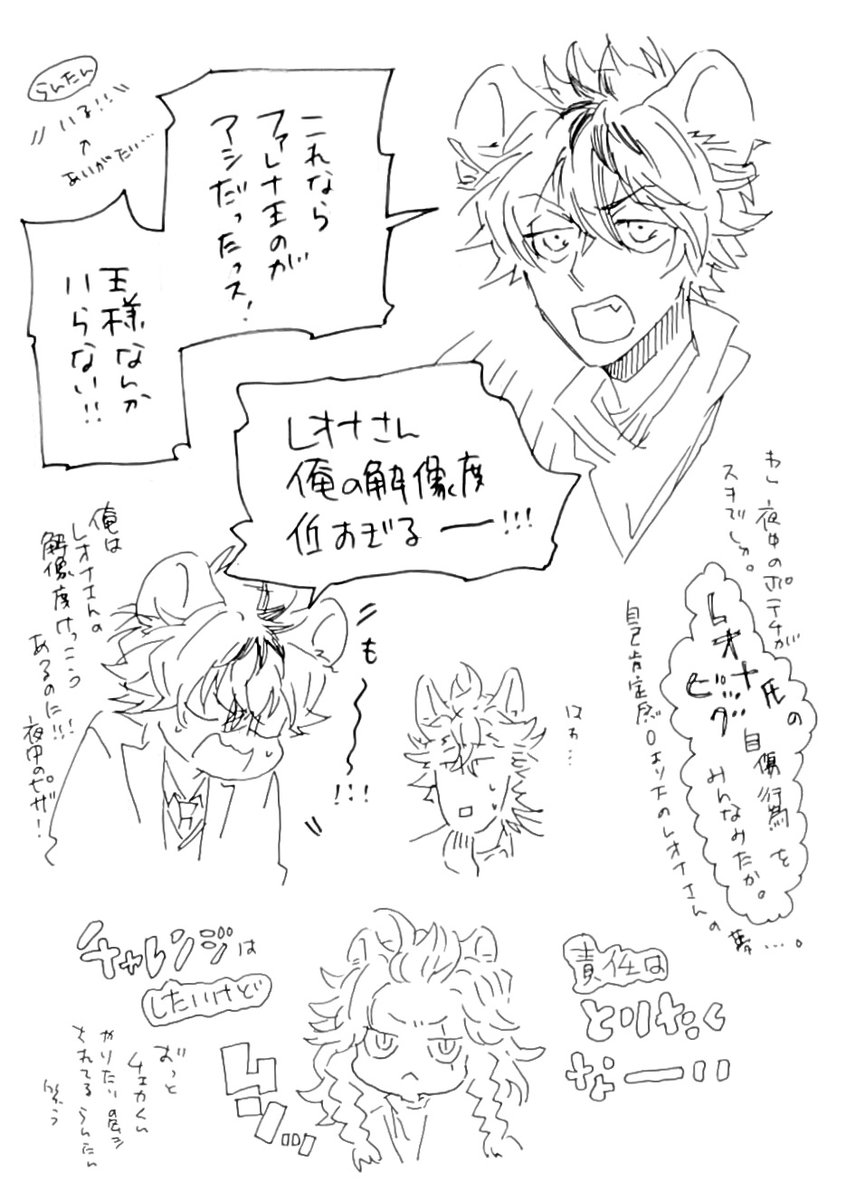 らんたん
いる!!
↑
ありがたい…
これなら
ファレナ王のが
マシだったっス!
王様なんか
いらない!!
レオナさん
俺の解像度
低すぎるー!!!
俺は
レオナさんの
解像度けっこう
あるのに!!!
夜中のピザ!
も〜〜〜!!!
はわ…
夜中のポテチが
スキでしょ。
レオナ氏の
ビッグ
自傷行為を
みんなみたか。
自己肯定感0より下のレオナさんの
チャレンジは
したいけど
責任は
とりたく
なーいい
ムッ
ずっと
チェカくん
されてるらんたん
笑う